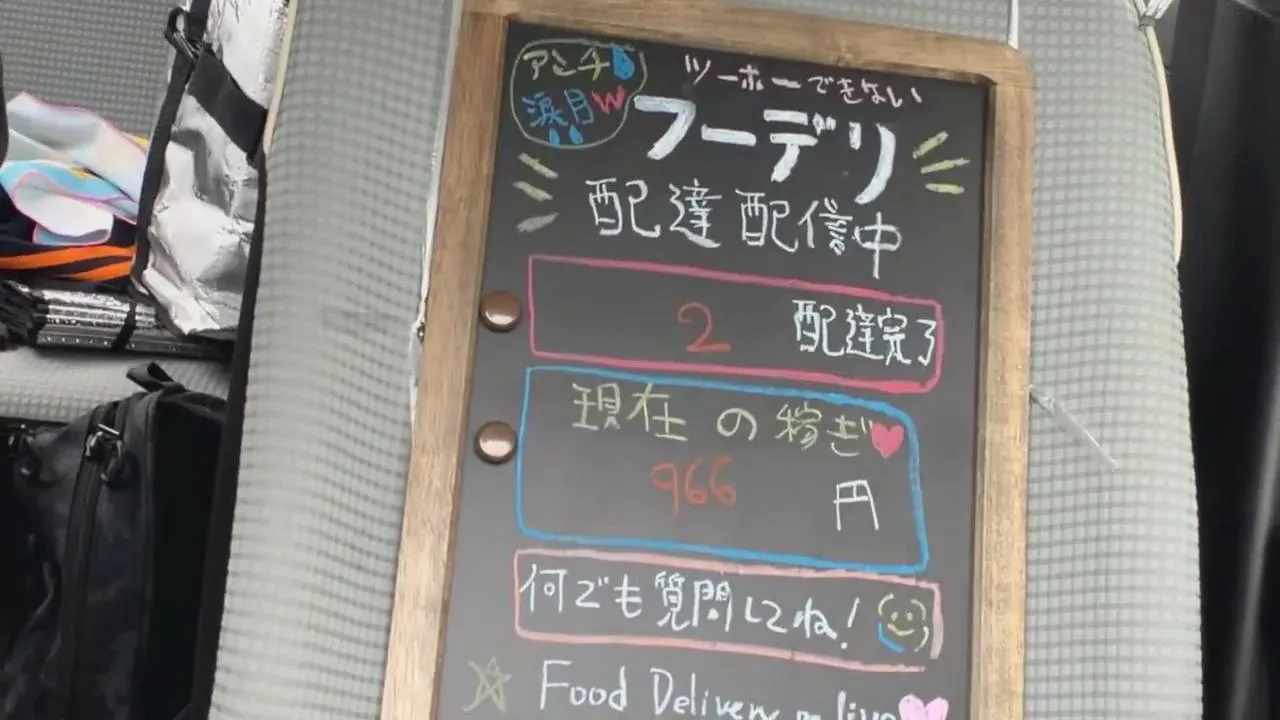 アンチ
涙目W
ツーホーできない
フーデリ
配達配信中
2 配達完了
現在の稼ぎ
966 円
何でも質問してね!
Food Delivery live